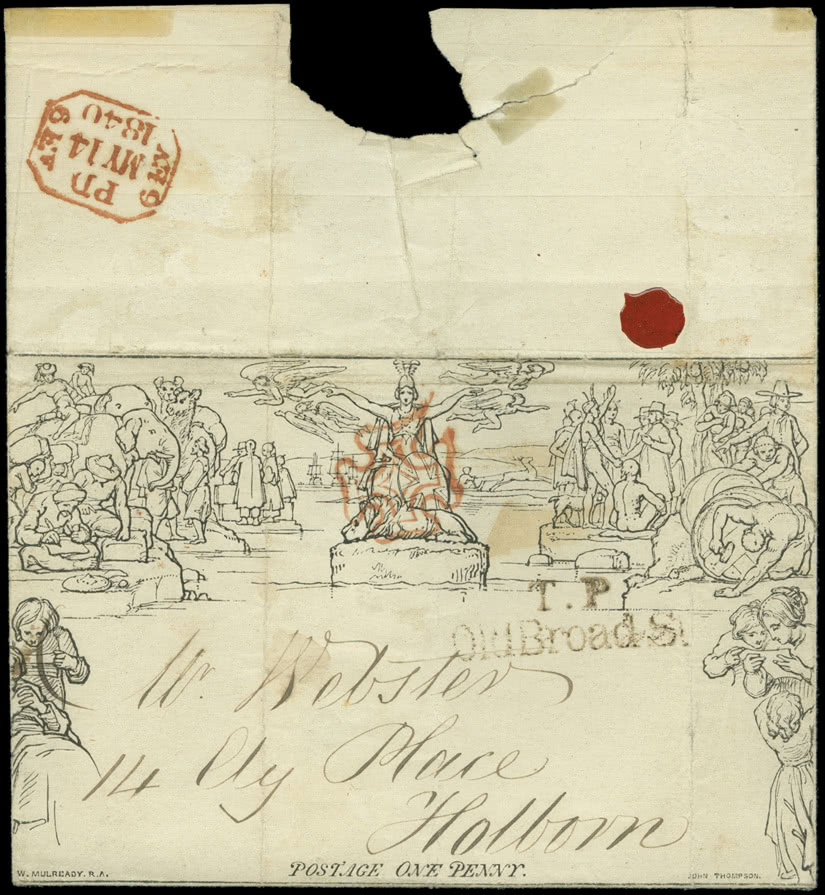 PD
MY 14
1840
T.P
Old Broad St
Mr Webster
14 Ely Place
Holborn
POSTAGE ONE PENNY.
W. MULREADY. R.A.
JOHN THOMPSON.